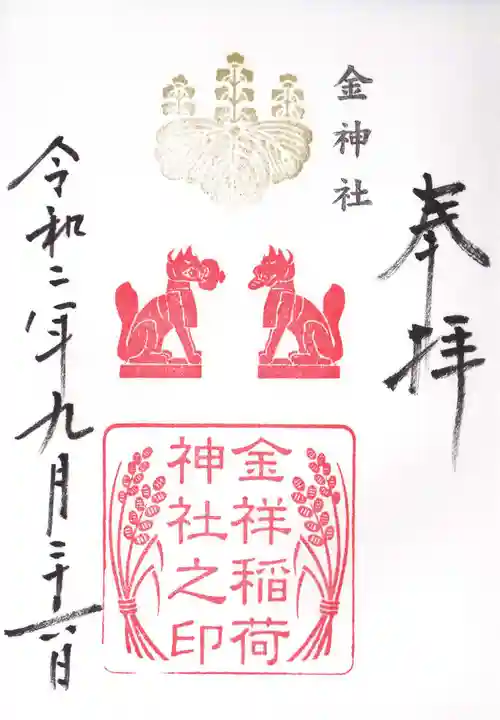 奉拝
金神社
金祥稲荷
神社之印
令和二年九月二十六日